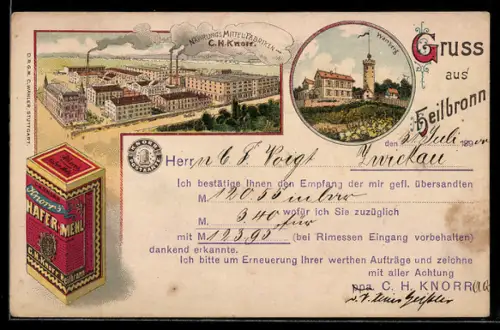 NAHRUNGS MITTEL FABRIKEN
C.H. Knorr.
Wartberg
Gruss
aus
Heilbronn
D.R.G.M. C. MAHLER, STUTTGART.
den 3. Juli 189
Herrn C F. Voigt Zwickau
Ich bestätige Ihnen den Empfang der mir gefl. übersandten
M 120.55
M 3.40 wofür ich Sie zuzüglich
mit M 123.95 (bei Rimessen Eingang vorbehalten)
dankend erkannte.
Ich bitte um Erneuerung Ihrer werthen Aufträge und zeichne
mit aller Achtung
ppa. C. H. KNORR
Knorr's
HAFER-MEHL
C.H. KNORR